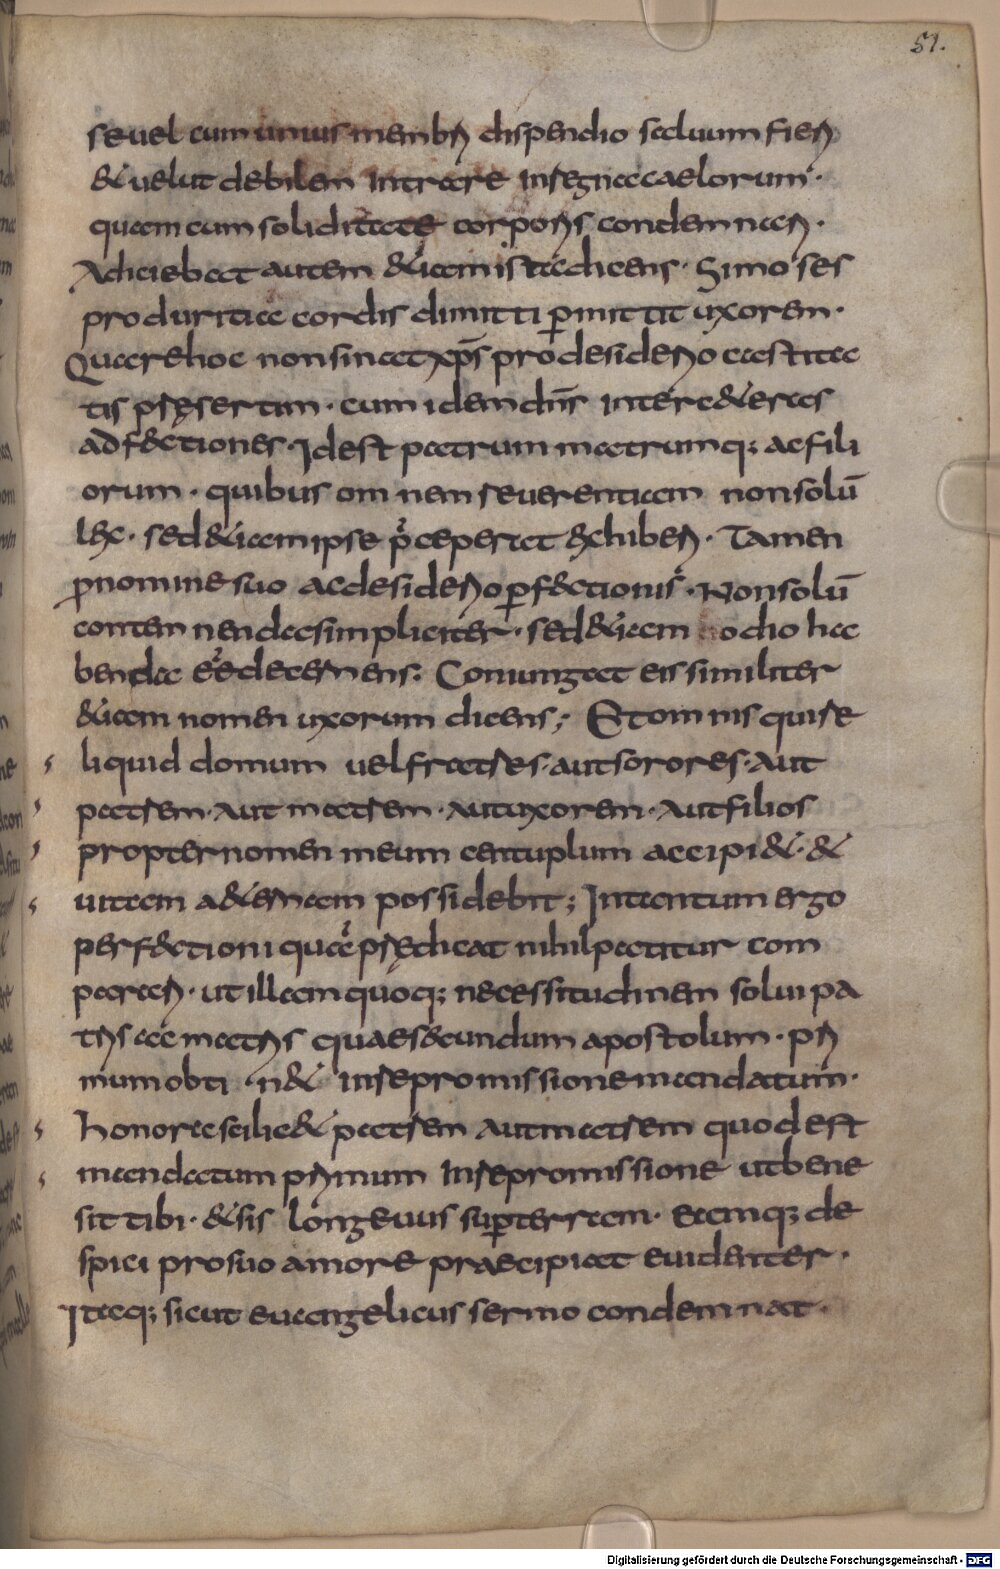 51.
re uel cum unius membri dispendio saluum fieri
& uelut debilem intrare in regna caelorum.
quam cum soliditate corporis condemnari.
Adiciebat autem &iam ista dicens. Si moises
pro duritia cordis dimitti p̄mittit uxorem.
Quare hoc non sinat xp̄s pro desiderio castita
tis pręsertim. cum idem dn̄s inter c&eras
adf&ctiones. Id est patrum matrumq; ac fili
orum. quibus omnem reuerentiam non solū
lex. sed &iam ipse p̄ceperat exhiberi. Tamen
pro nomine suo ac desiderio p̄f&ctionis. Non solū
contemnendas simpliciter. sed &iam odio ha
bendas eē decernens. Coniungat eis similiter
&iam nomen uxorum dicens; Et omnis qui re
liquid domum uel fratres. aut sorores. Aut
patrem. Aut matrem. Aut uxorem. Aut filios
propter nomen meum centuplum accipi&. &
uitam a&ernam possidebit; Intantum ergo
perf&ctioni quā prędicat nihil patitur com
parari. ut illam quoq; necessitudinem solui pa
tris ac matris quae s&cundum apostolum. pri
mum obti n& in repromissione mandatum.
Honora scilic& patrem Aut matrem quod est
mandatum primum in repromissione ut bene
sit tibi. & sis longeuus sup̄ terram. eamq; de
spici pro suo amore praecipiat euidenter.
Itaq; sicut euangelicus sermo condemnat.
Digitalisierung gefördert durch die Deutsche Forschungsgemeinschaft - DFG